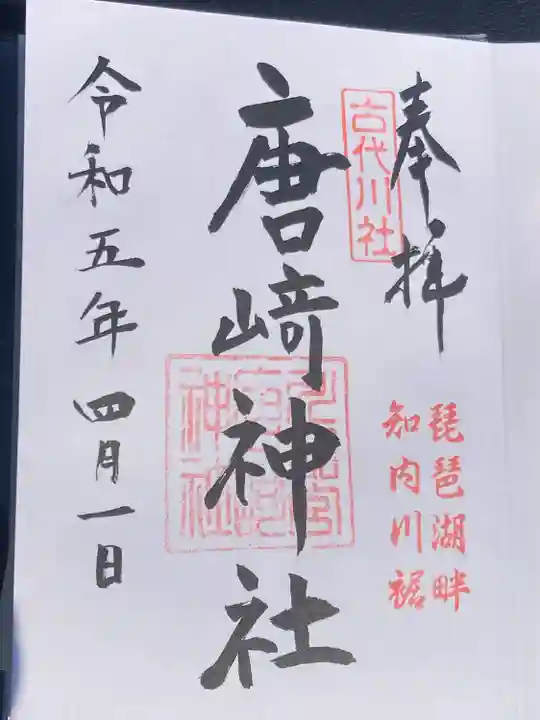 奉拝
古代川社
琵琶湖畔
知内川裾
唐﨑神社
令和五年四月一日